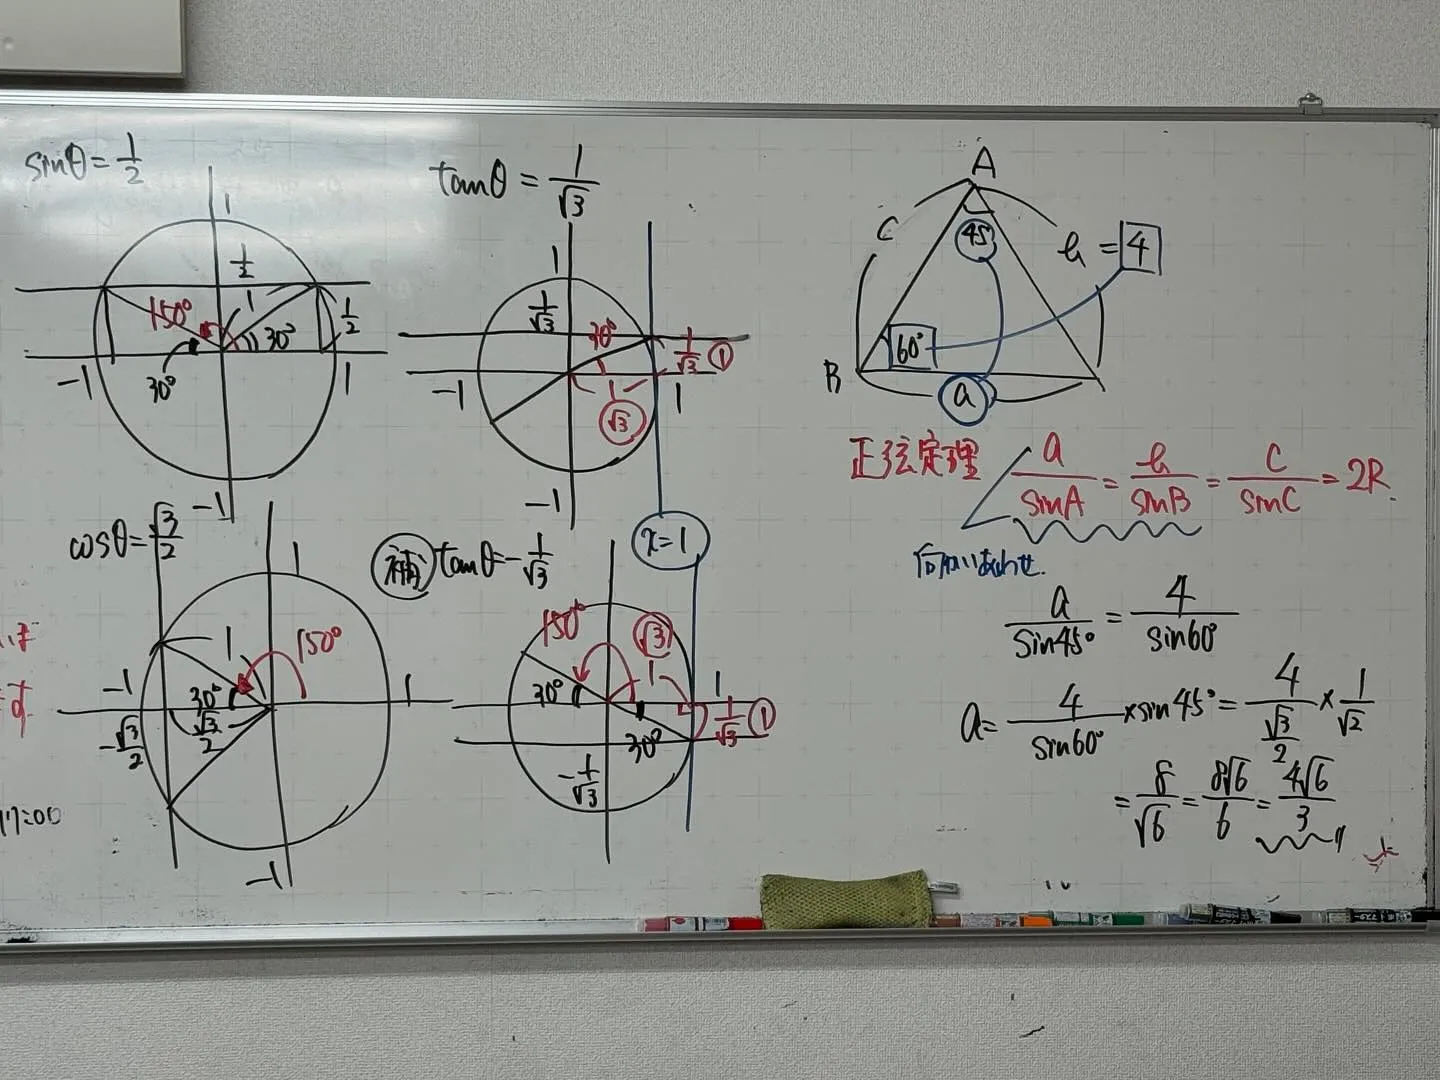 sinθ=1/2
1
1/2
1
1/2
150°
30°
30°
-1
1
-1
tanθ=1/√3
1
1/√3
30°
1/√3 ①
-1
1
√3
1
-1
x=1
cosθ=√3/2
1
1
150°
-1
30°
√3/2
-√3/2
1
-1
補 tanθ=-1/√3
150°
√3
1
1
30°
1/√3 ①
30°
-1/√3
A
C
45
b=4
60°
B
a
正弦定理 a/sinA=b/sinB=c/sinC=2R
向かいあわせ.
a/sin45°=4/sin60°
a=4/sin60°×sin45°=4/(√3/2)×1/√2
=8/√6=8√6/6=4√6/3